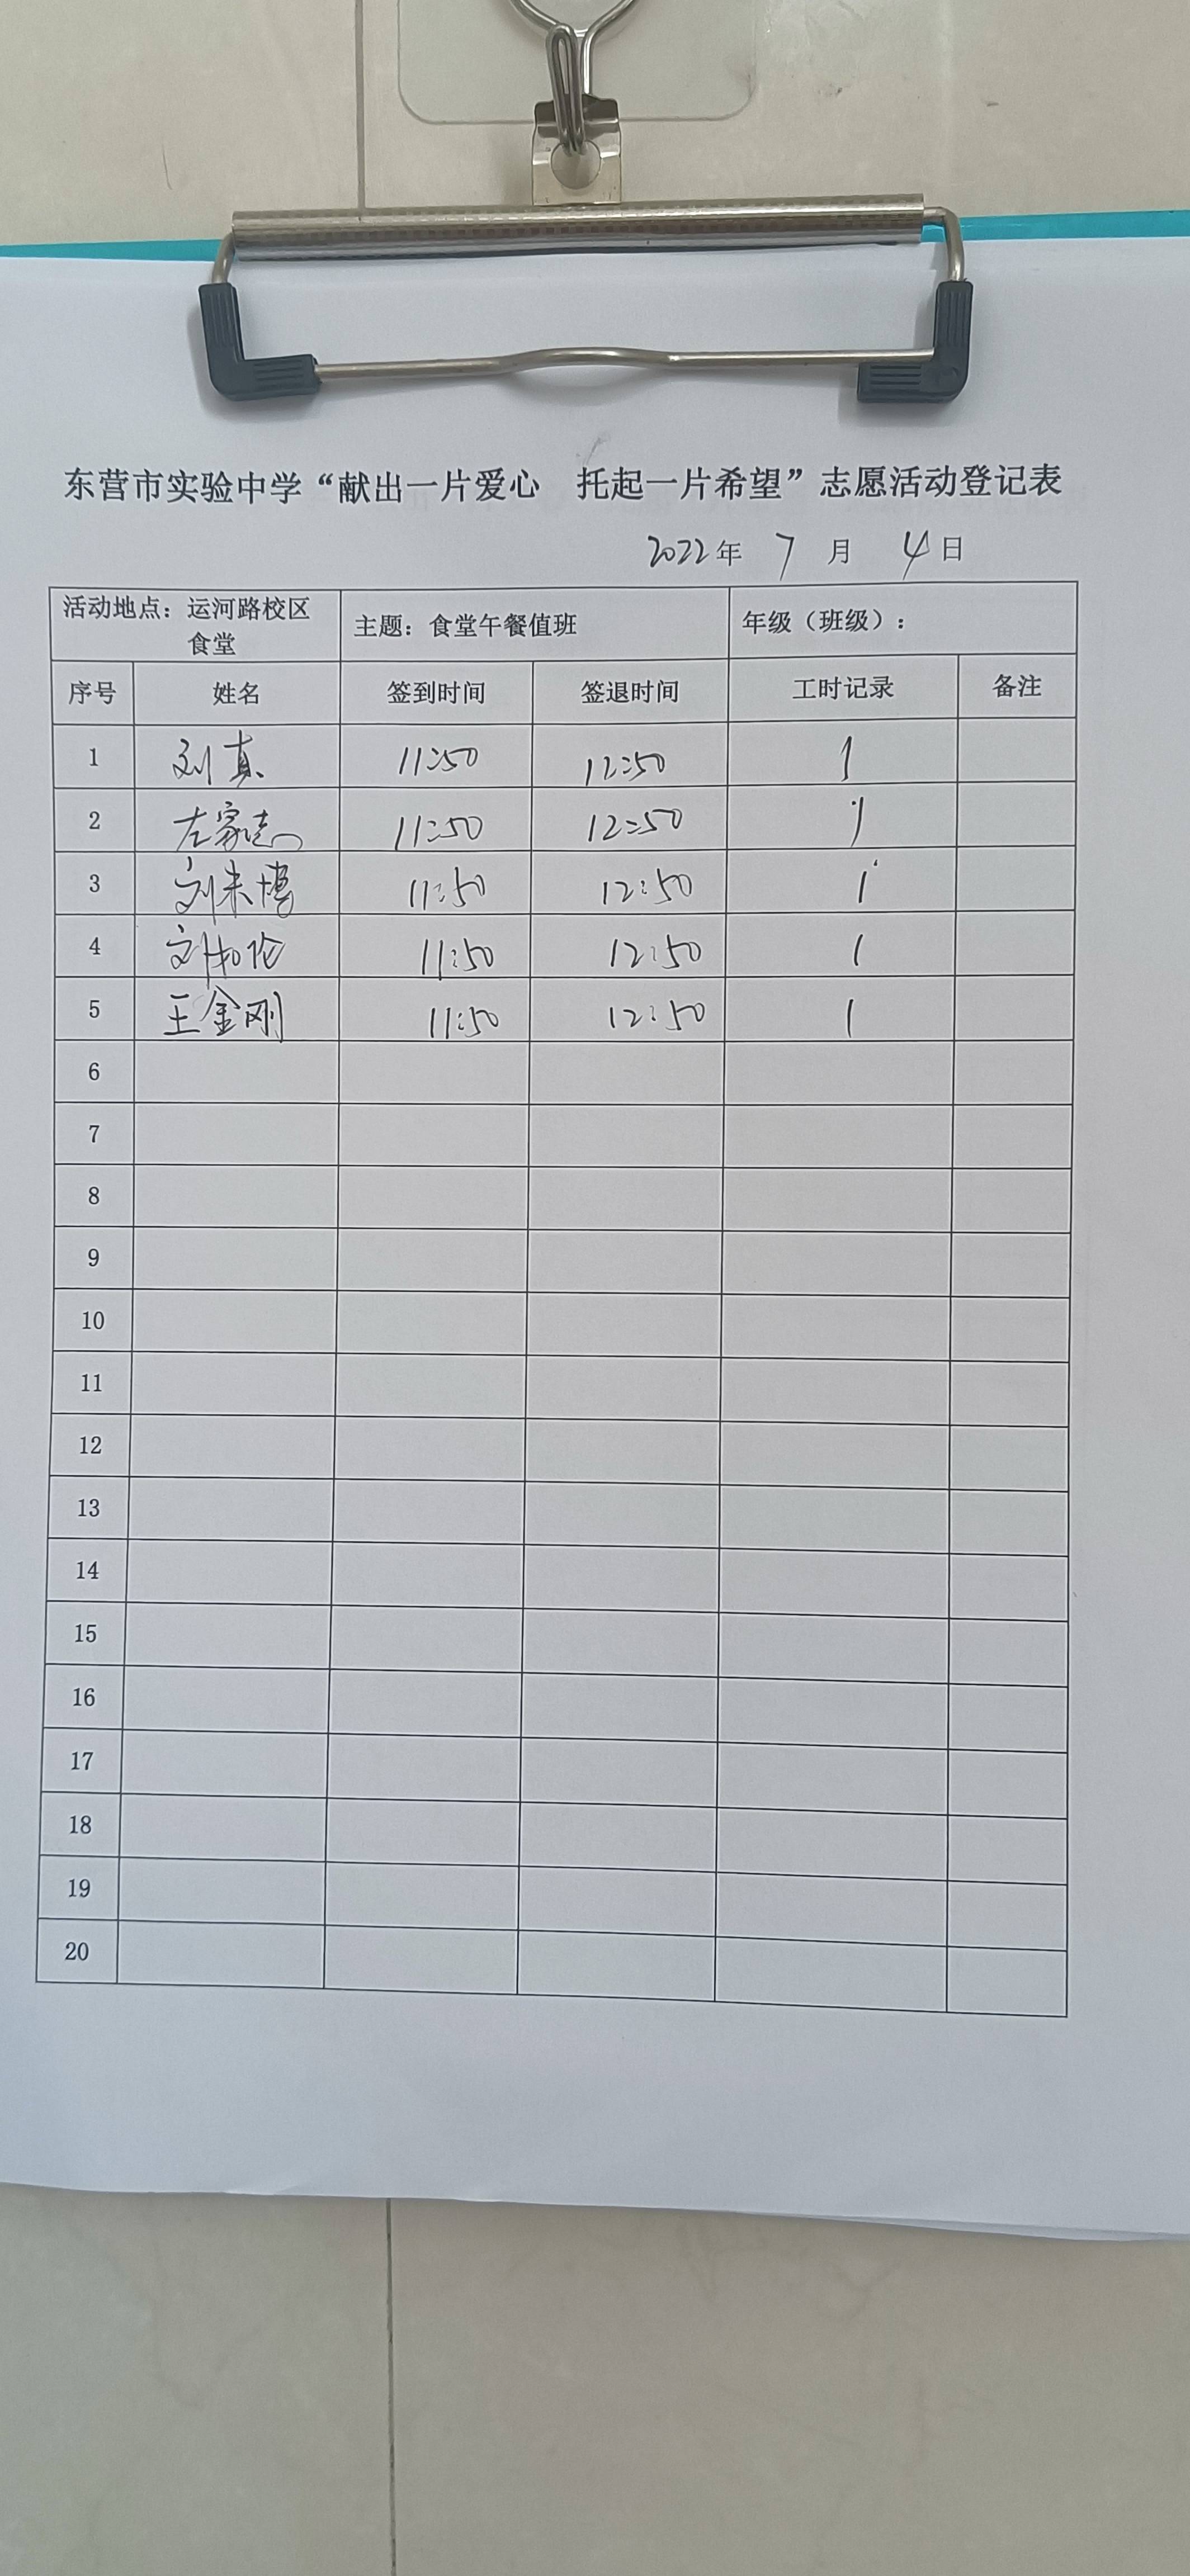 东营市实验中学“献出一片爱心 托起一片希望”志愿活动登记表
2022年 7 月 4日
活动地点：运河路校区食堂 主题：食堂午餐值班 年级（班级）：
序号 姓名 签到时间 签退时间 工时记录 备注
1 刘真 11:50 12:50 1
2 左家志 11:50 12:50 1
3 刘来博 11:50 12:50 1
4 11:50 12:50 1
5 王金刚 11:50 12:50 1
6
7
8
9
10
11
12
13
14
15
16
17
18
19
20